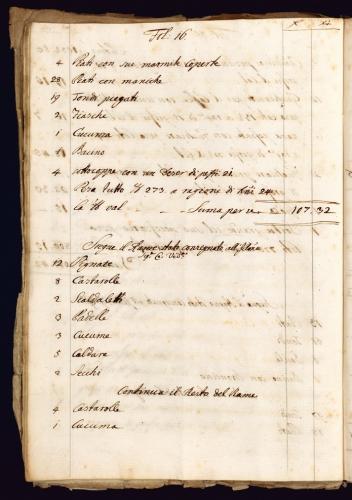 Fol: 16.
4 Piati con sue marmite coperte
28 Piati con maniche
19 Tondi piegati
2 Fiasche
1 Cucuma
1 Bacino
4 con un di pezzi 21
Pesa tutto ℔ 273 a ragione di 24
la ℔ val Suma per 107.32
Segue il Rame stato consegnato
12 Pignate
8 Castarolle
2 Scaldaletti
3 Padelle
3 Cucume
5 Caldara
2 Sechi
Continua il Resto del Rame
4 Castarolle
1 Cucuma